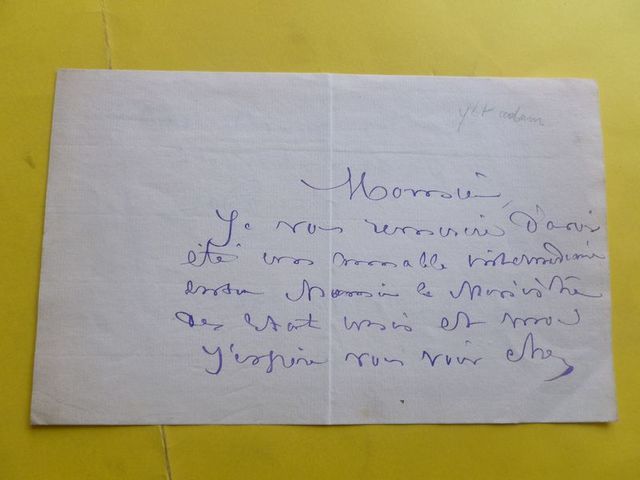 Monsieur,
Je vous remercie d'avoir
été un aimable intermédiaire
entre Monsieur le Ministre
des Etats unis et moi
J'espère vous voir chez